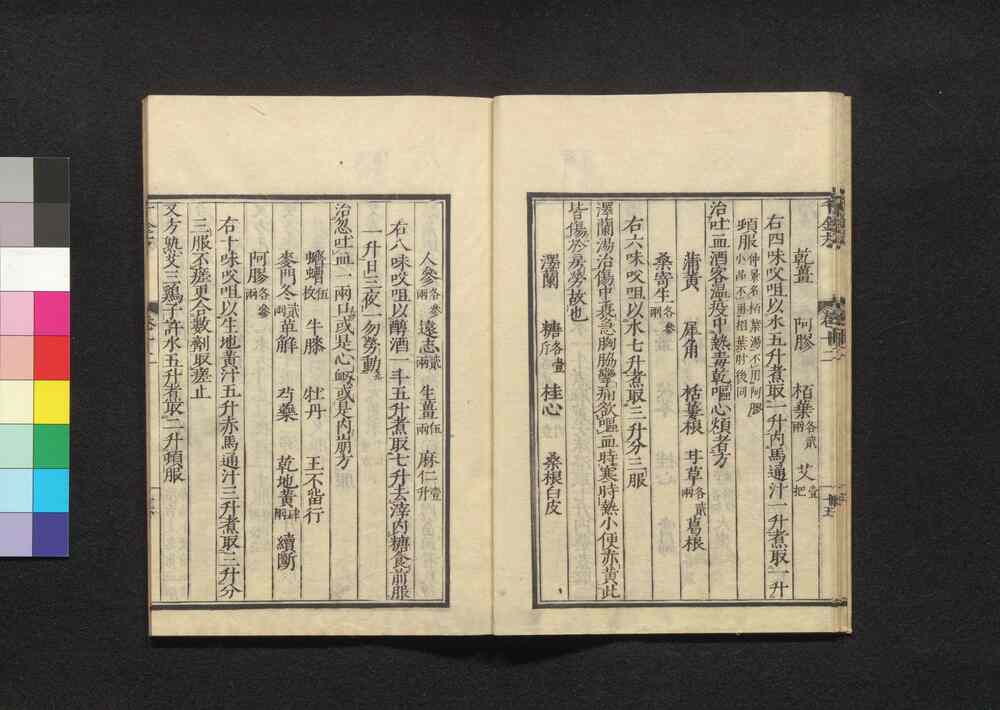 乾薑　阿膠　栢葉各貳兩　艾壹把
右四味㕮咀以水五升煮取一升内馬通汁一升煮取一升
頓服仲景名栢葉湯不用阿膠小品不用栢葉肘後同
治吐血酒客溫疫中熱毒乾嘔心煩者方
蒲黃　犀角　栝蔞根　甘草各貳兩　葛根
桑寄生各參兩
右六味㕮咀以水七升煮取三升分三服
澤蘭湯治傷中裏急胸脇攣痛欲嘔血時寒時熱小便赤黃此
皆傷於房勞故也
澤蘭　糖各壹斤　桂心　桑根白皮
人參各參兩　遠志貳兩　生薑伍兩　麻仁壹升
右八味㕮咀以醇酒一斗五升煮取七升去滓内糖食前服
一升日三夜一勿勞動
治忽吐血一兩口或是心衂或是内崩方
蠐螬伍枚　牛膝　牡丹　王不留行
麥門冬貳兩　萆解　芍藥　乾地黃肆兩　續斷
阿膠各參兩
右十味㕮咀以生地黃汁五升赤馬通汁三升煮取三升分
三服不瘥更合數劑取瘥止
又方熟艾三鷄子許水五升煮取二升頓服